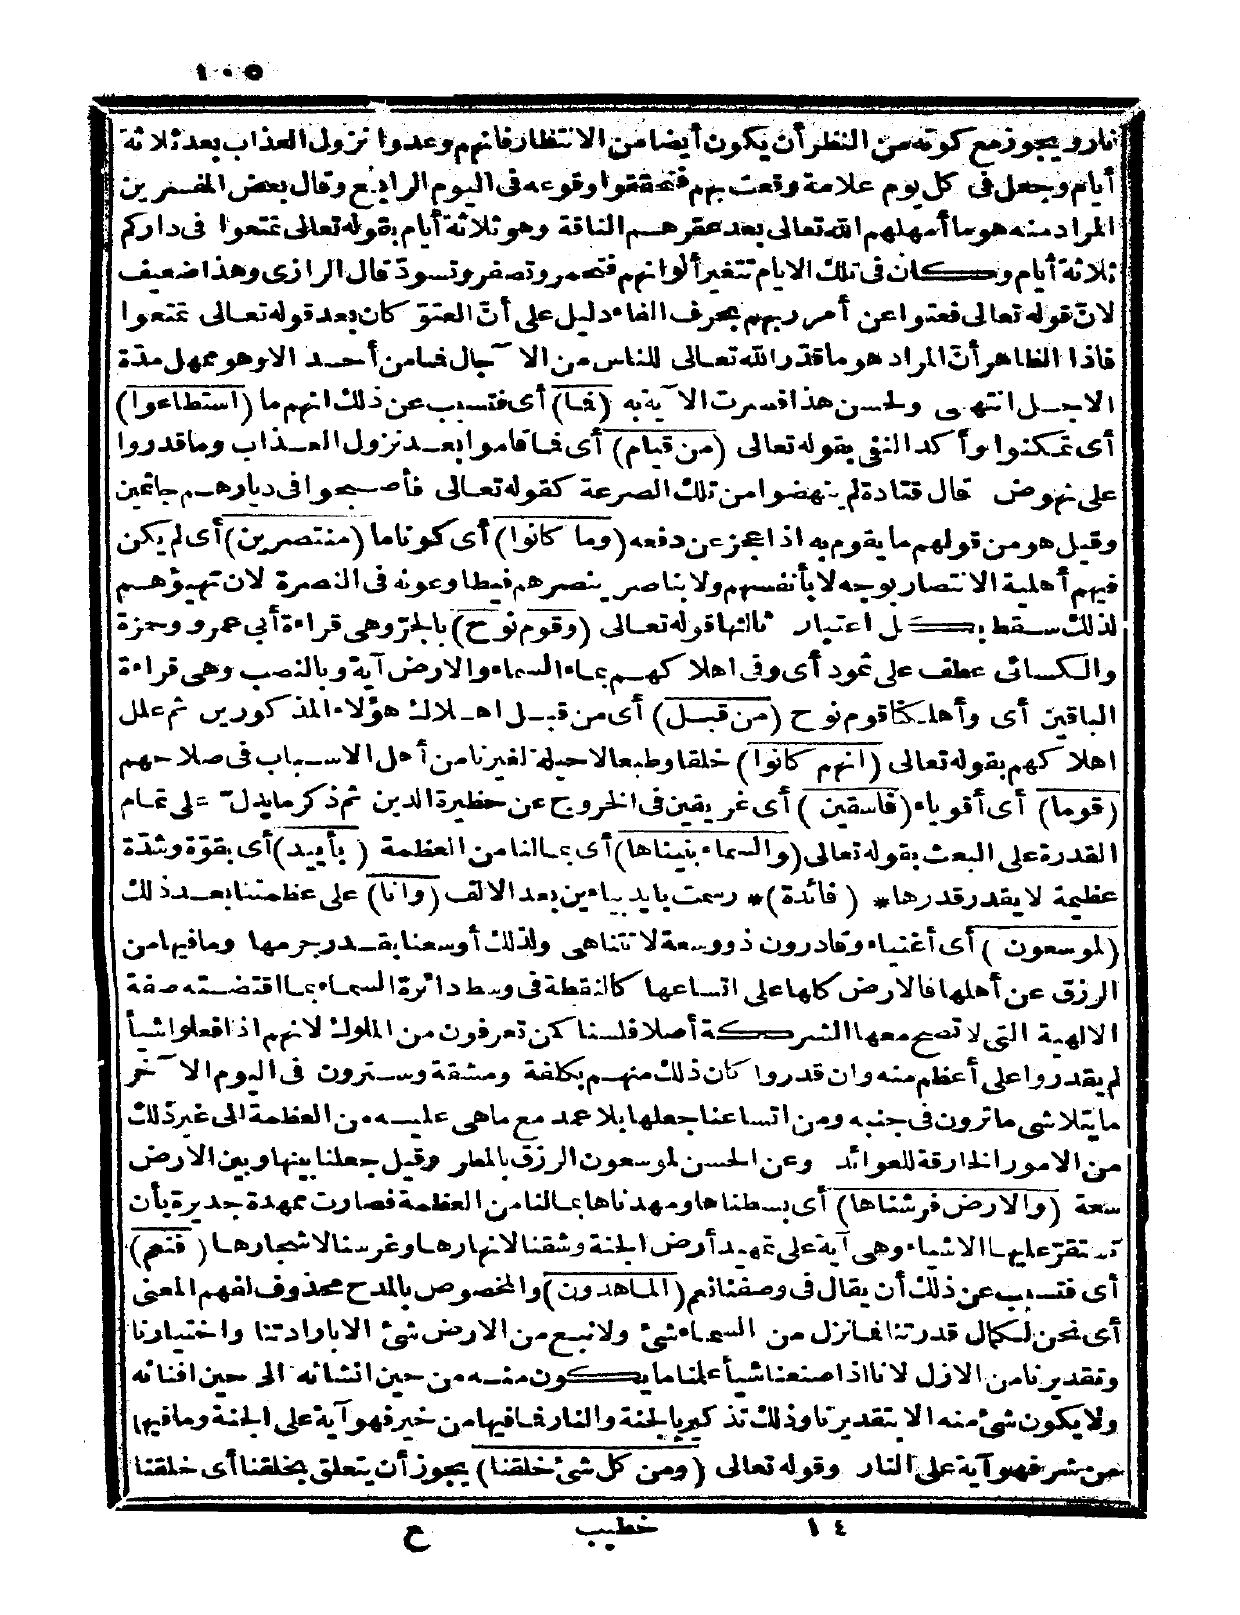 ١٠٥
نار ويجوز مع كونه من النظر أن يكون أيضا من الانتظار فانهم وعدوا نزول العذاب بعد ثلاثة
أيام وجعل فى كل يوم علامة وقعت بهم فتحققوا وقوعه فى اليوم الرابع وقال بعض المفسرين
المراد منه هو ما أمهلهم الله تعالى بعد عقرهم الناقة وهو ثلاثة أيام بقوله تعالى تمتعوا فى داركم
ثلاثة أيام وكان فى تلك الايام تتغير ألوانهم فتحمر وتصفر وتسودّ قال الرازى وهذا ضعيف
لانّ قوله تعالى فعتوا عن أمر ربهم بحرف الفاء دليل على أنّ العتوّ كان بعد قوله تعالى تمتعوا
فاذا الظاهر أنّ المراد هو ما قدّر الله تعالى للناس من الآجال فما من أحد الا وهو ممهل مدّة
الاجل انتهى ولحسن هذا فسرت الآية به (فما) أى فتسبب عن ذلك انهم ما (استطاعوا)
أى تمكنوا وأكد النفى بقوله تعالى (من قيام) أى فما قاموا بعد نزول العذاب وما قدروا
على نهوض قال قتادة لم ينهضوا من تلك الصرعة كقوله تعالى فأصبحوا فى ديارهم جاثمين
وقيل هو من قولهم ما يقوم به اذا عجز عن دفعه (وما كانوا) أى كوناما (منتصرين) أى لم يكن
فيهم أهلية الانتصار بوجه لا بأنفسهم ولا بناصر ينصرهم فيطاوعونه فى النصرة لان تهيؤهم
لذلك سقط بكل اعتبار ثالثها قوله تعالى (وقوم نوح) بالجرّ وهى قراءة أبى عمرو وحمزة
والكسائى عطف على ثمود أى وفى اهلاكهم بماء السماء والارض آية وبالنصب وهى قراءة
الباقين أى وأهلكنا قوم نوح (من قبل) أى من قبل اهلاك هؤلاء المذكورين ثم علل
اهلاكهم بقوله تعالى (انهم كانوا) خلقا وطبعا لا حيلة لغيرنا من أهل الاسباب فى صلاحهم
(قوما) أى أقوياء (فاسقين) أى غريقين فى الخروج عن حظيرة الدين ثم ذكر ما يدلّ على تمام
القدرة على البعث بقوله تعالى (والسماء بنيناها) أى بمالنا من العظمة (بأييد) أى بقوّة وشدّة
عظيمة لا يقدر قدرها * (فائدة) * رسمت بايد بياءين بعد الالف (وانا) على عظمتنا بعد ذلك
(لموسعون) أى أغنياء وقادرون ذو وسعة لا تتناهى ولذلك أوسعنا بقدر جرمها وما فيها من
الرزق عن أهلها فالارض كلها على اتساعها كالنقطة فى وسط دائرة السماء بما اقتضته صفة
الالهية التى لا تصح معها الشركة أصلا فلسنا كمن تعرفون من الملوك لانهم اذا فعلوا شيأ
لم يقدروا على أعظم منه وان قدروا كان ذلك منهم بكلفة ومشقة وسترون فى اليوم الآخر
ما يتلاشى ما ترون فى جنبه ومن اتساعنا جعلها بلا عمد مع ما هى عليه من العظمة الى غير ذلك
من الامور الخارقة للعوائد وعن الحسن لموسعون الرزق بالمطر وقيل جعلنا بينها وبين الارض
سعة (والارض فرشناها) أى بسطناها ومهدناها بمالنا من العظمة فصارت ممهدة جديرة بأن
تستقرّ عليها الاشياء وهى آية على تمهيد أرض الجنة وشقنا لانهارها وغرسنا لاشجارها (فنعم)
أى فتسبب عن ذلك أن يقال فى وصفنا نعم (الماهدون) والمخصوص بالمدح محذوف لفهم المعنى
أى نحن لكمال قدرتنا فما نزل من السماء شئ ولا نبع من الارض شئ الا بارادتنا واختيارنا
وتقديرنا من الازل لانا اذا صنعنا شيأ علمنا ما يكون منه من حين انشائه الى حين افنائه
ولا يكون شئ منه الا بتقديرنا وذلك تذكير بالجنة والنار فما فيها من خير فهو آية على الجنة وما فيها
من شر فهو آية على النار وقوله تعالى (ومن كل شئ خلقنا) يجوز أن يتعلق بخلقنا أى خلقنا
١٤ خطيب ع